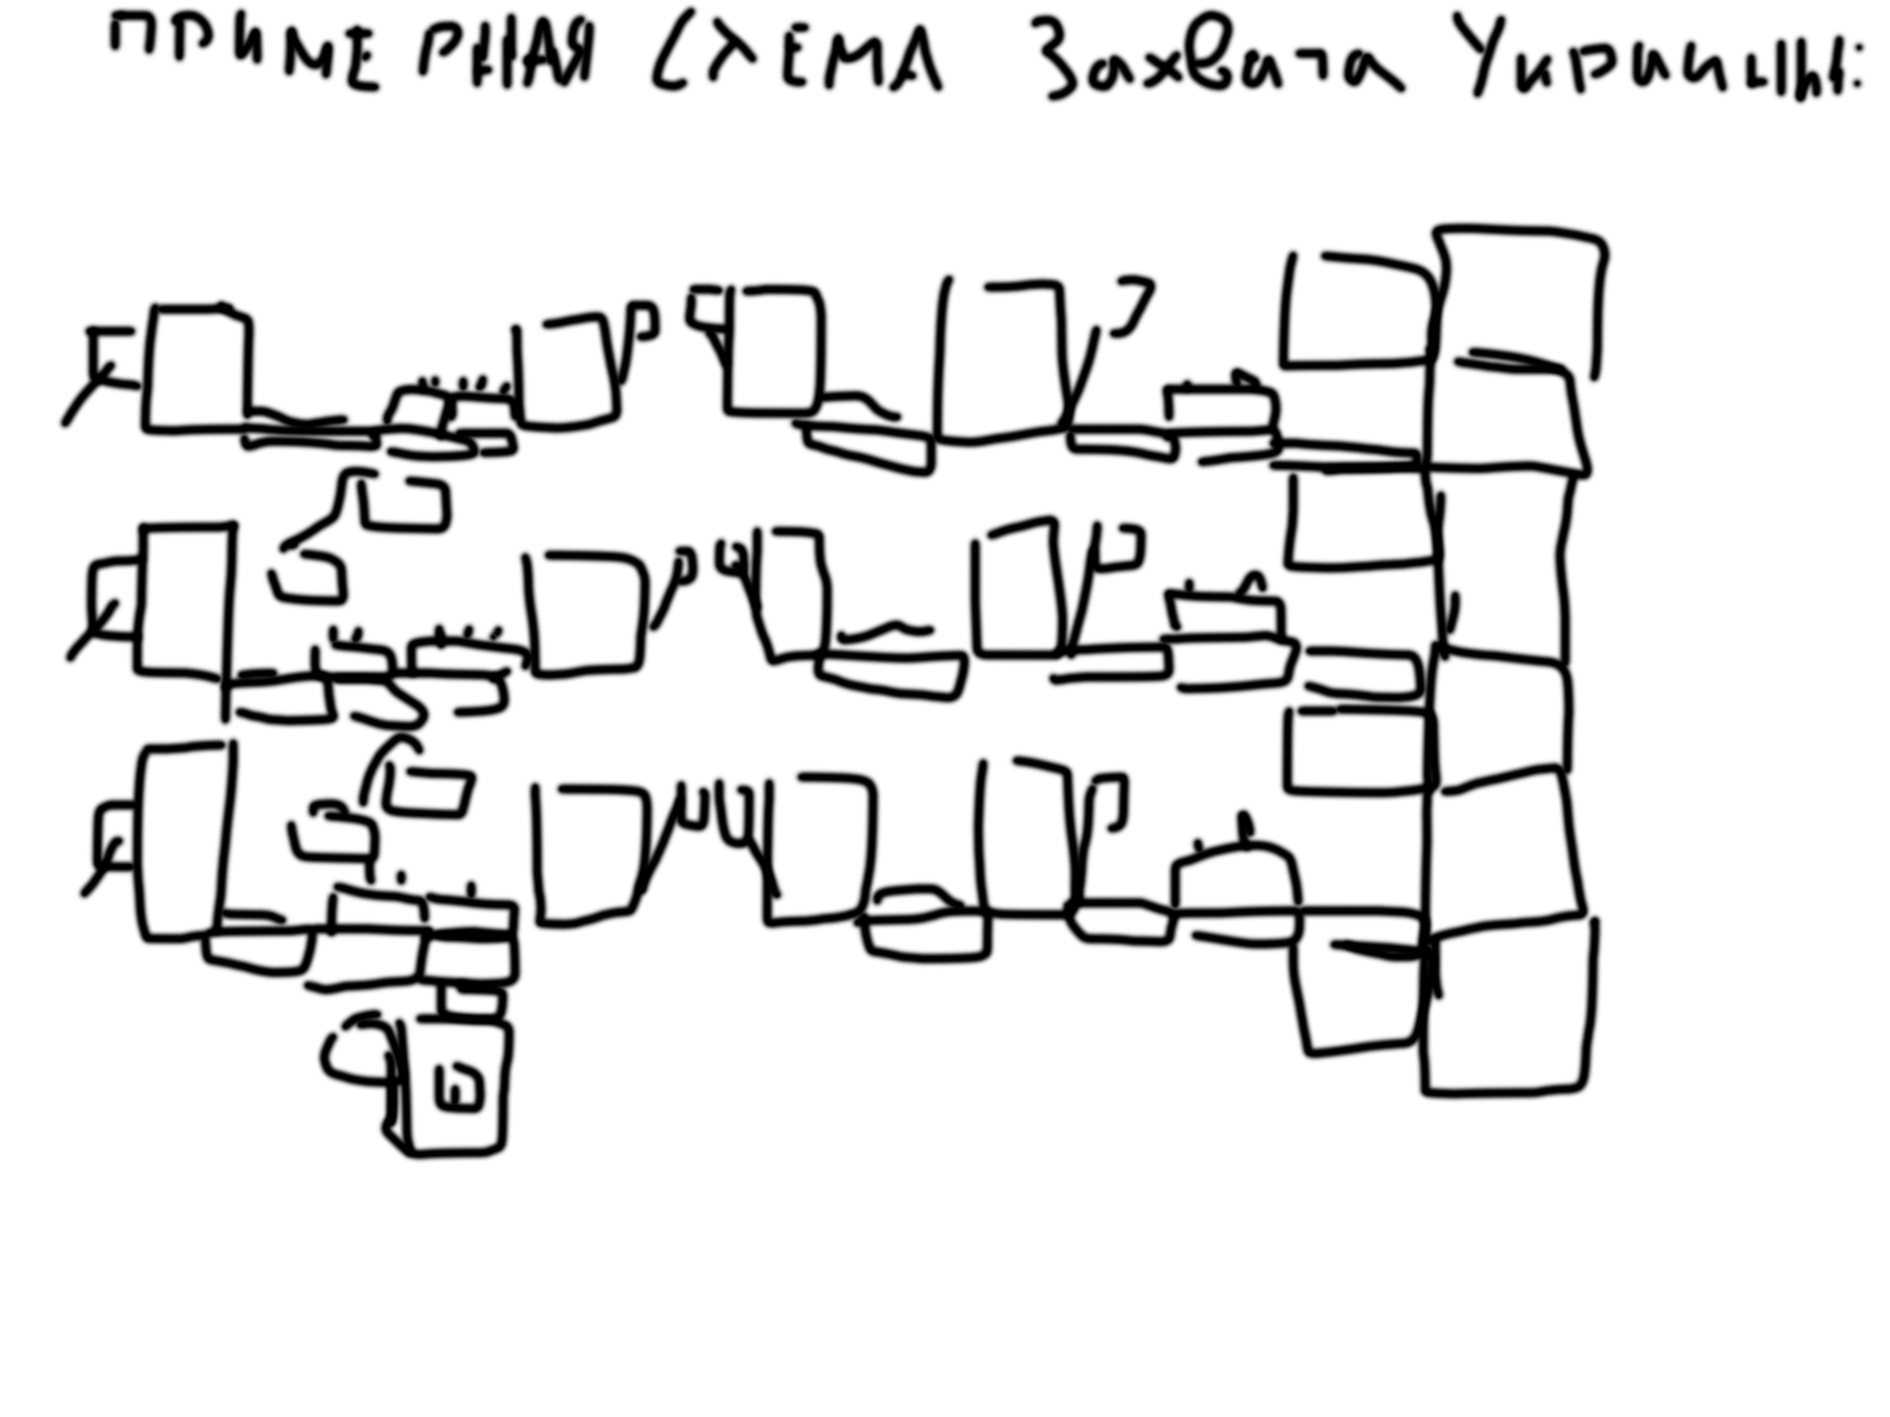 ПРИМЕРНАЯ СХЕМА Захвата Украины: